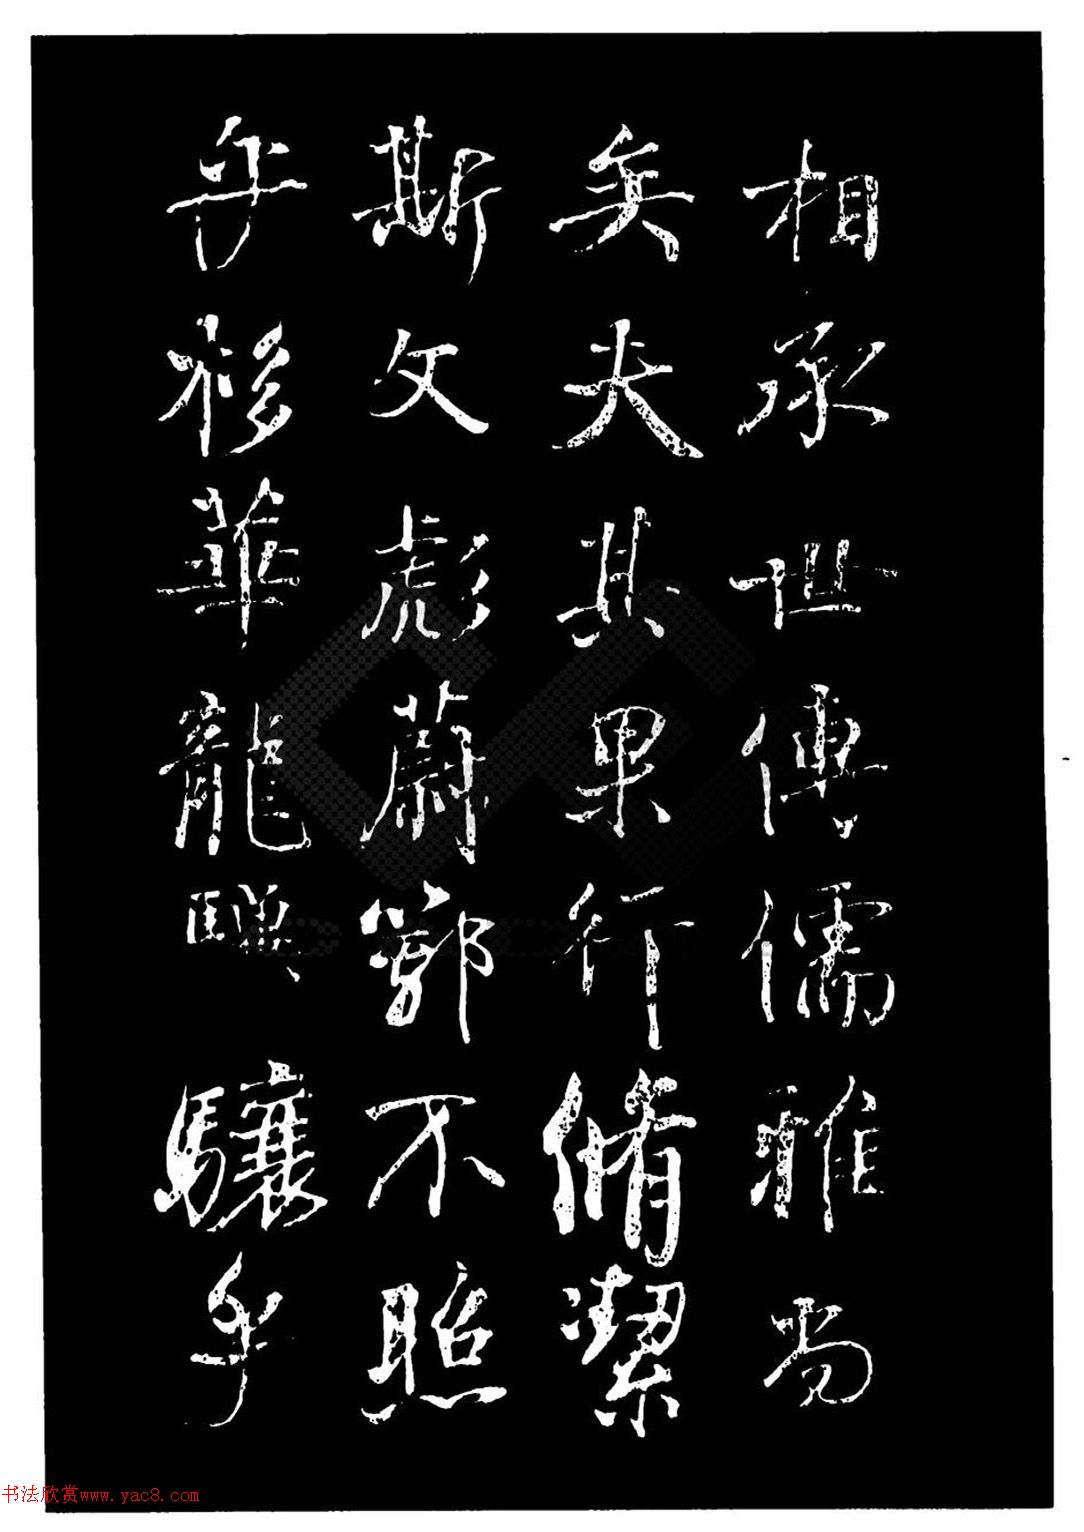 相承世傳儒雅尚
矣夫其果行脩潔
斯文彪蔚鄂不照
乎移華龍驥驤乎
书法欣赏www.yac8.com